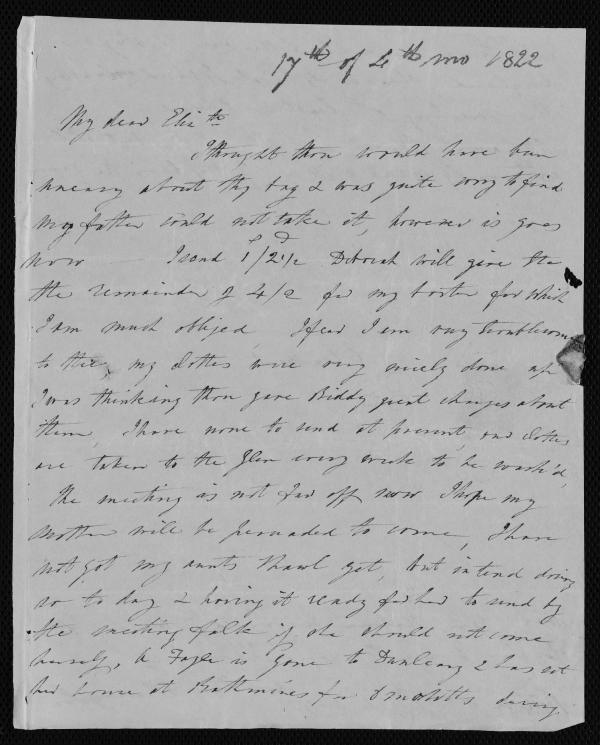 17th of 4th mo 1822
My dear Elizth
I thought thou would have been
uneasy about thy bag & was quite sorry to find
my father could not take it, however it goes
now I send 1/2½ Deborah will give thee
the remainder of 4/2 for my for which
I am much obliged, I fear I am very troublesome
to thee, my clothes were very nicely done up
I was thinking thou gave Biddy great charges about
them, I have none to send at present, our clothes
are taken to the Glen every week to be wash'd,
The meeting is not far off now I hope my
mother will be persuaded to come, I have
not got my aunts shawl yet, but intend doing
so to day & having it ready for her to send by
the meeting folk if she should not come
herself, A Fayle is gone to Dunleary & has let
her house at Rathmines for 6 months during